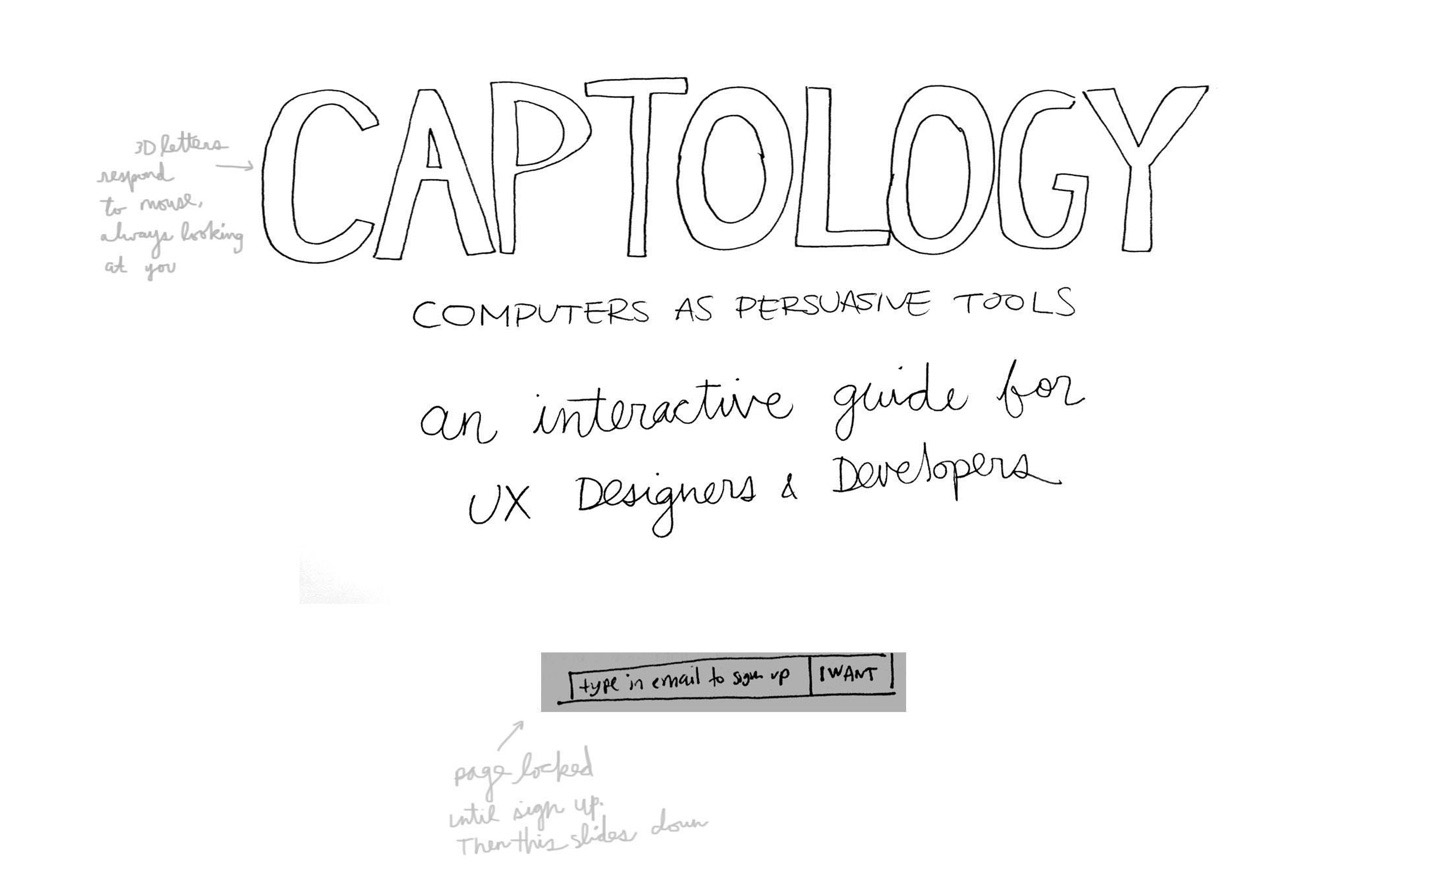 CAPTOLOGY
3D letters
respond
to mouse,
always looking
at you
COMPUTERS AS PERSUASIVE TOOLS
an interactive guide for
UX Designers & Developers
type in email to sign up
I WANT
page locked
until sign up.
Then this slides down